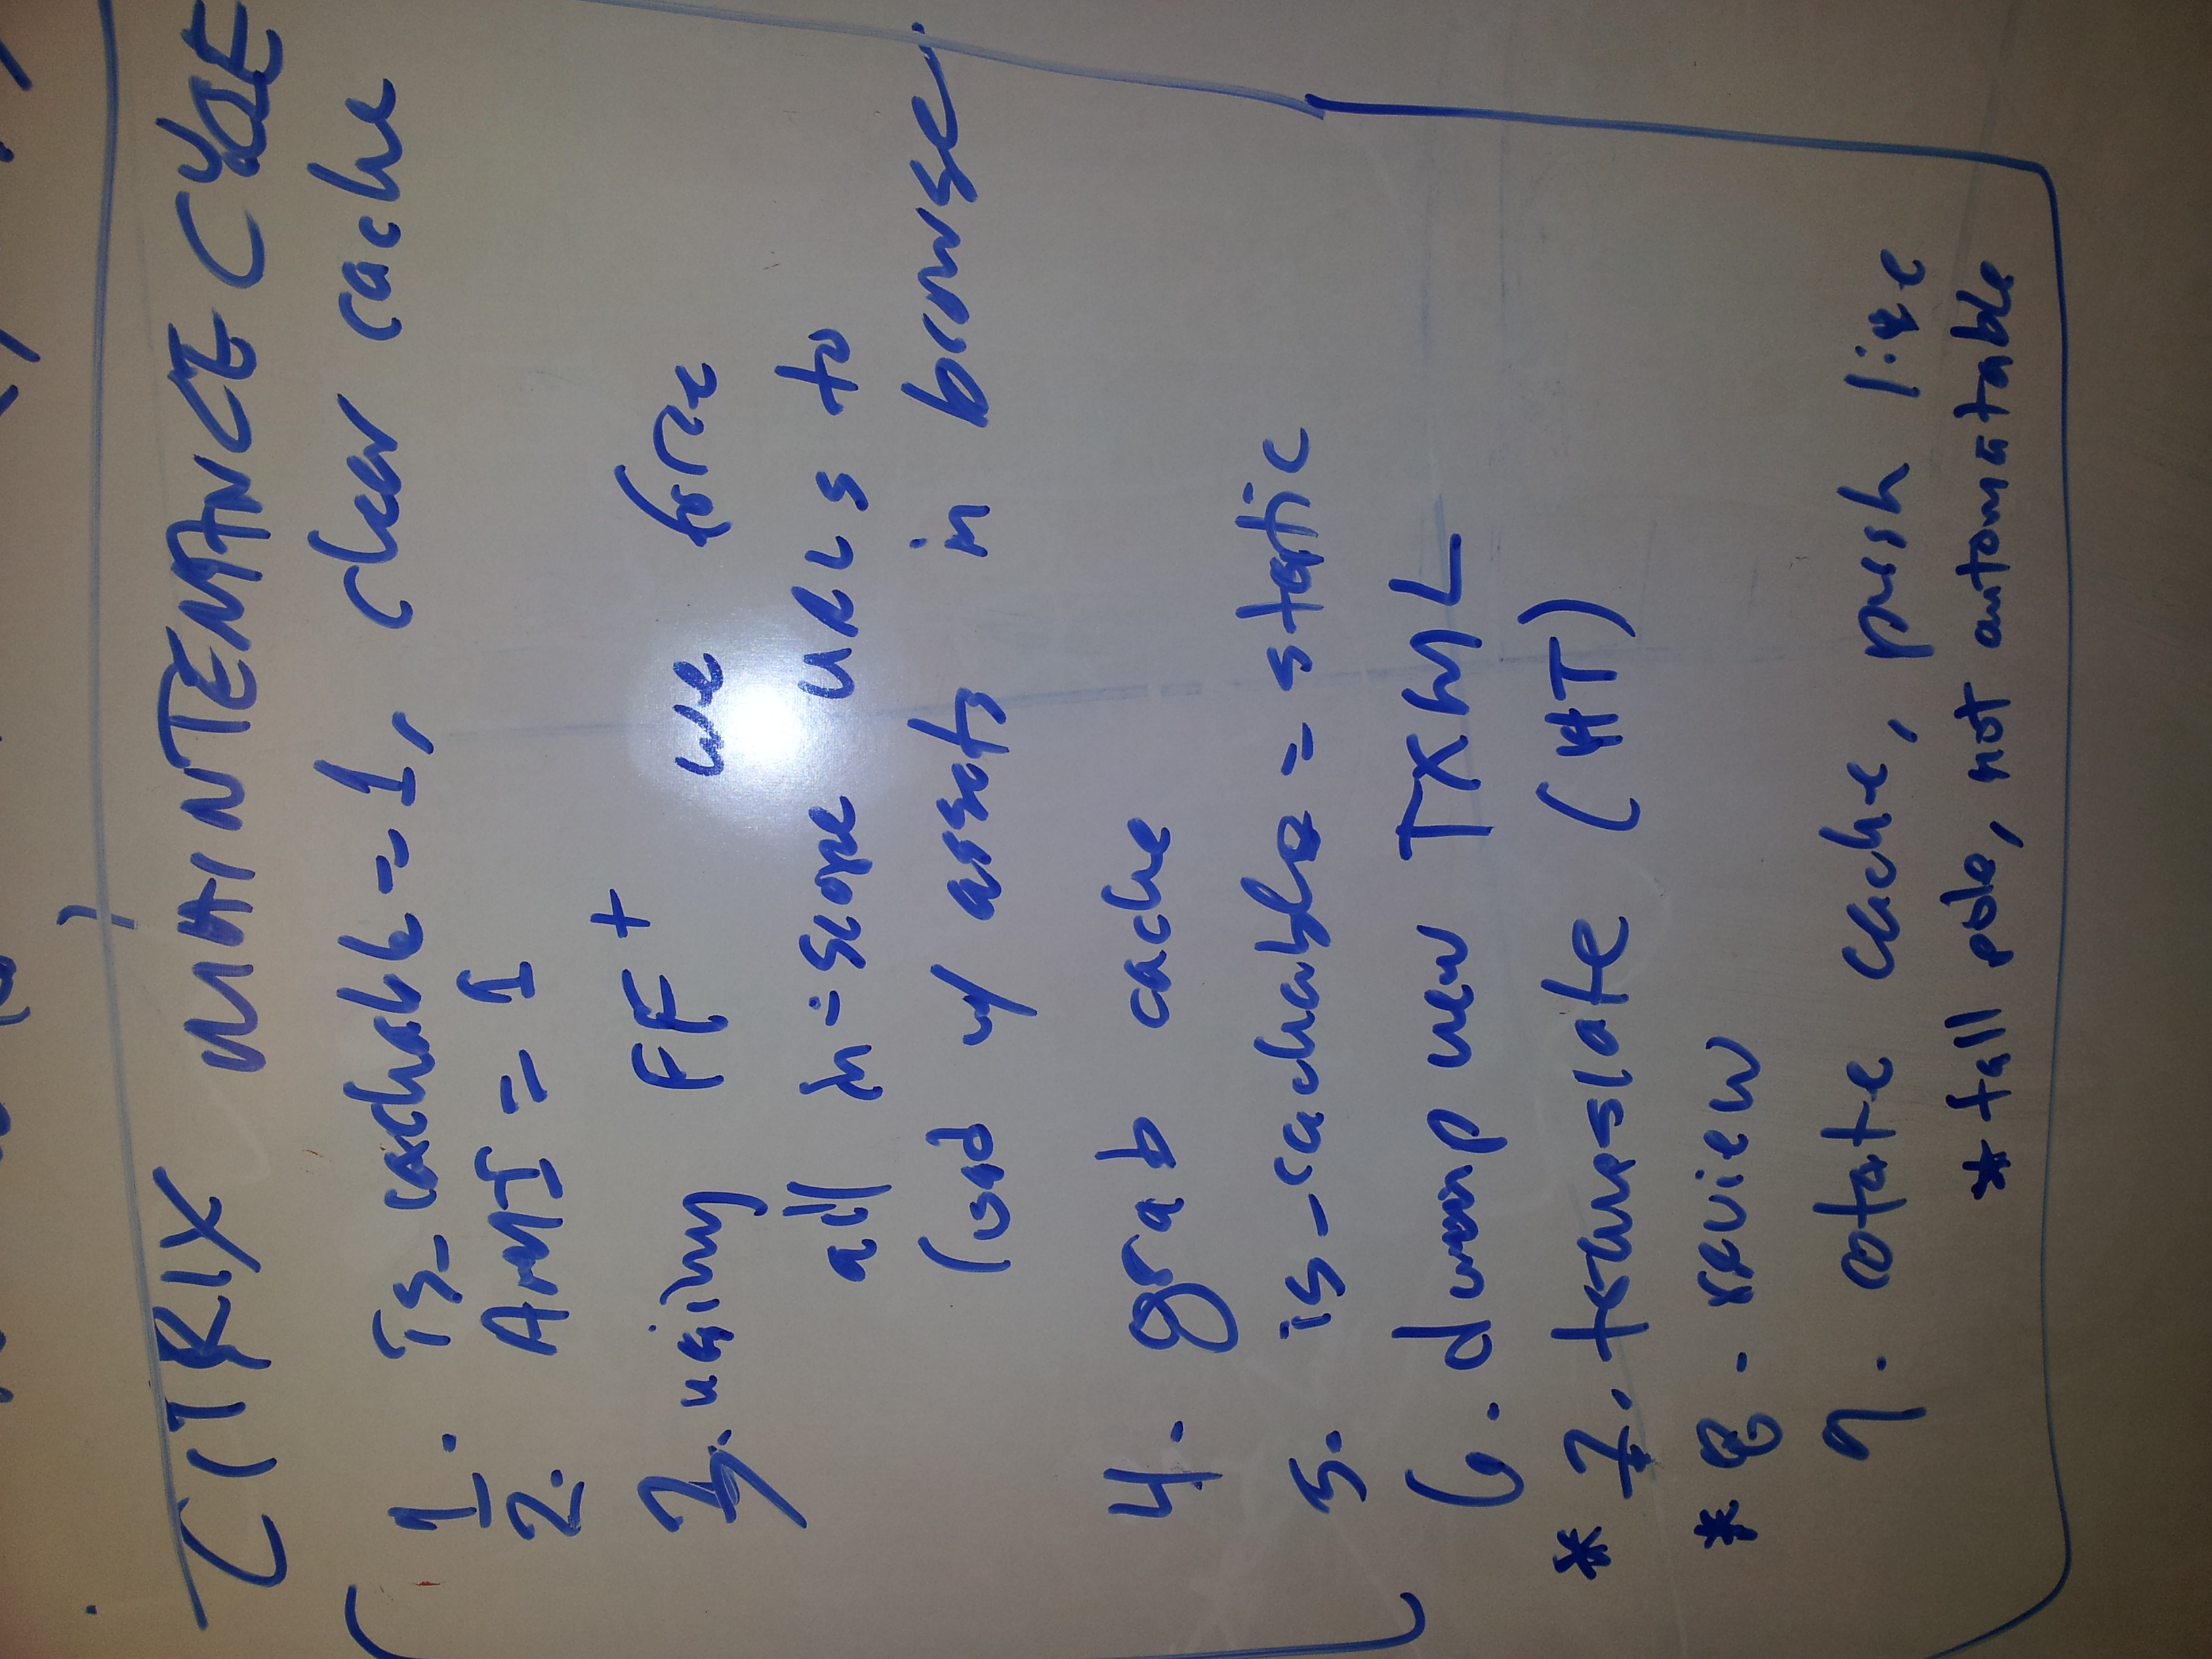 CITRIX MAINTENANCE CYCLE
1. Is-cachable=1, clear cache
2. AMI = 1
3. using FF + we force
all in-scope URLs to
load w/ assets in browser
4. grab cache
5. is-cachable = static
6. dump new TXML
* 7. translate (HT)
* 8. review
9. rotate cache, push live
* tall pole, not automatable